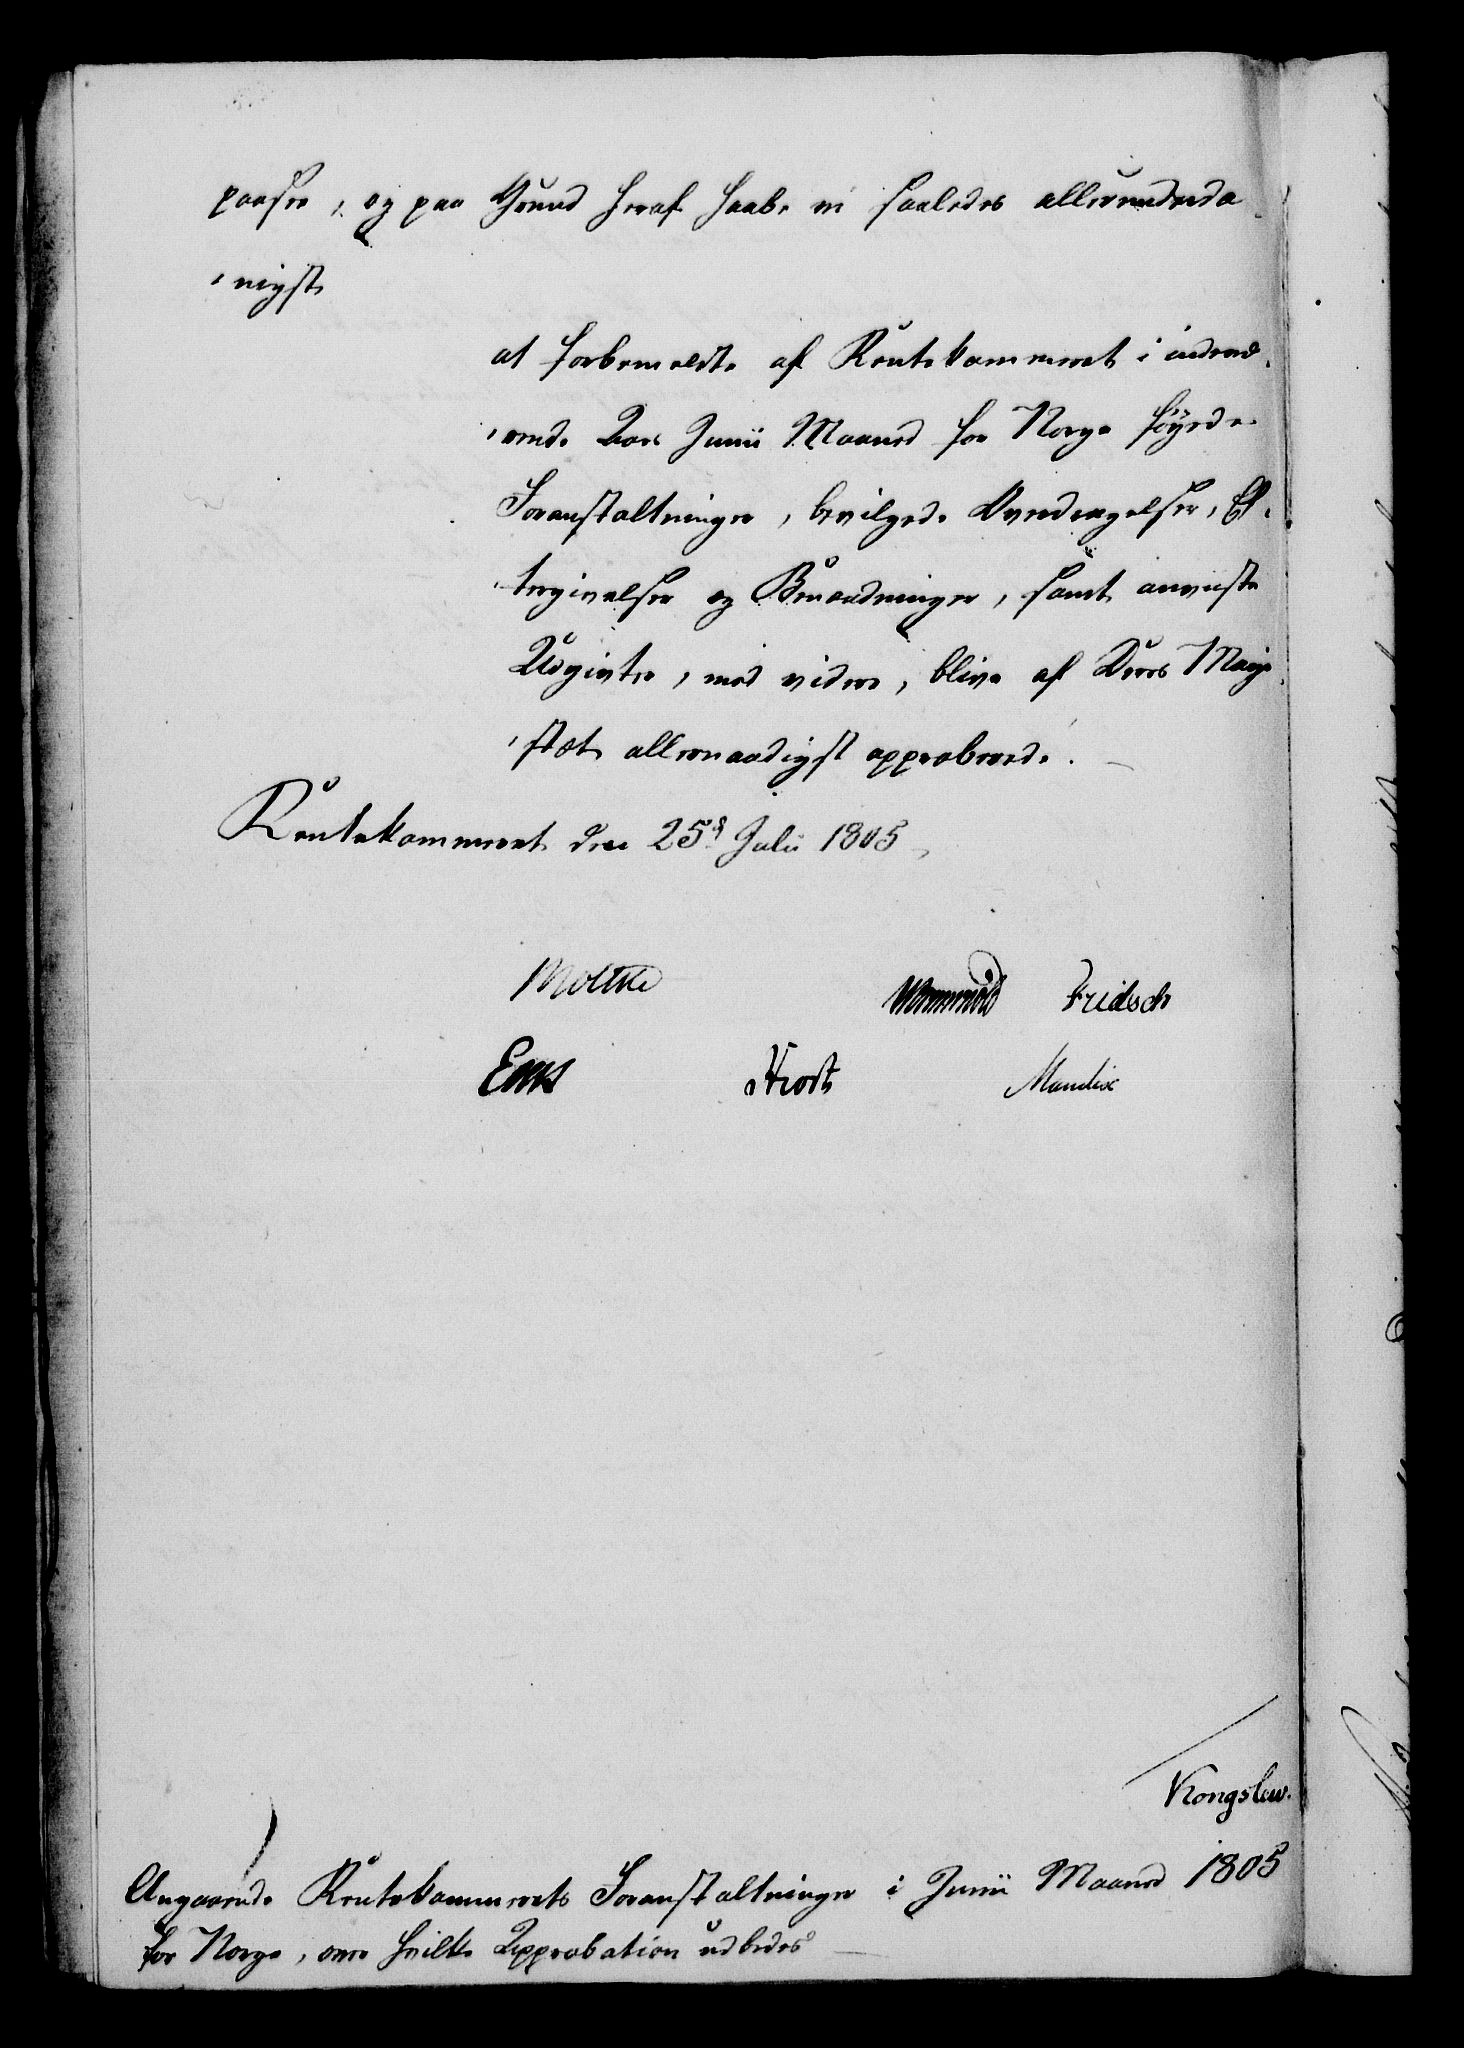 paasee, og paa Grund heraf haabe vi saaledes allerunderda-
-nigst
at forbemeldte af Rentekammeret i indevæ-
-rende Aars Junii Maaned for Norge føyede
Foranstaltninger, bevilgede Dvendragelser, Ef-
tergivelser og Benaadninger, samt anviste
Udgivter, med videre, blive af Deres Maje-
-stæt allernaadigst approberede.
Rentekammeret den 25d Julii 1805
Moltke Wormskiold Fridsch
Eeks Hiort Mandix
Kongslew.
Angaaende Rentekammerets Foranstaltninger i Junii Maaned 1805
for Norge, om hvilke Approbation udbedes